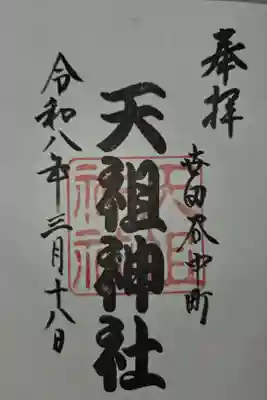 奉拝
世田谷中町
天祖神社
令和八年三月十八日